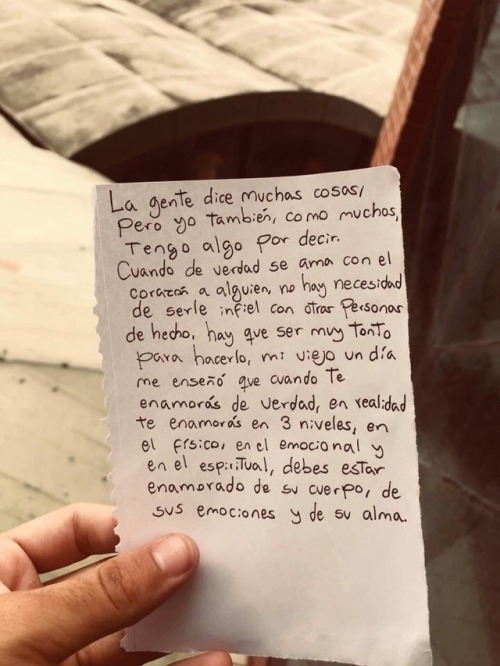 La gente dice muchas cosas,
Pero yo también, como muchos,
Tengo algo por decir.
Cuando de verdad se ama con el
corazón a alguien, no hay necesidad
de serle infiel con otras Personas
de hecho, hay que ser muy tonto
para hacerlo, mi viejo un día
me enseñó que cuando Te
enamorás de verdad, en realidad
te enamorás en 3 niveles, en
el físico, en el emocional y
en el espiritual, debes estar
enamorado de su cuerpo, de
sus emociones y de su alma.